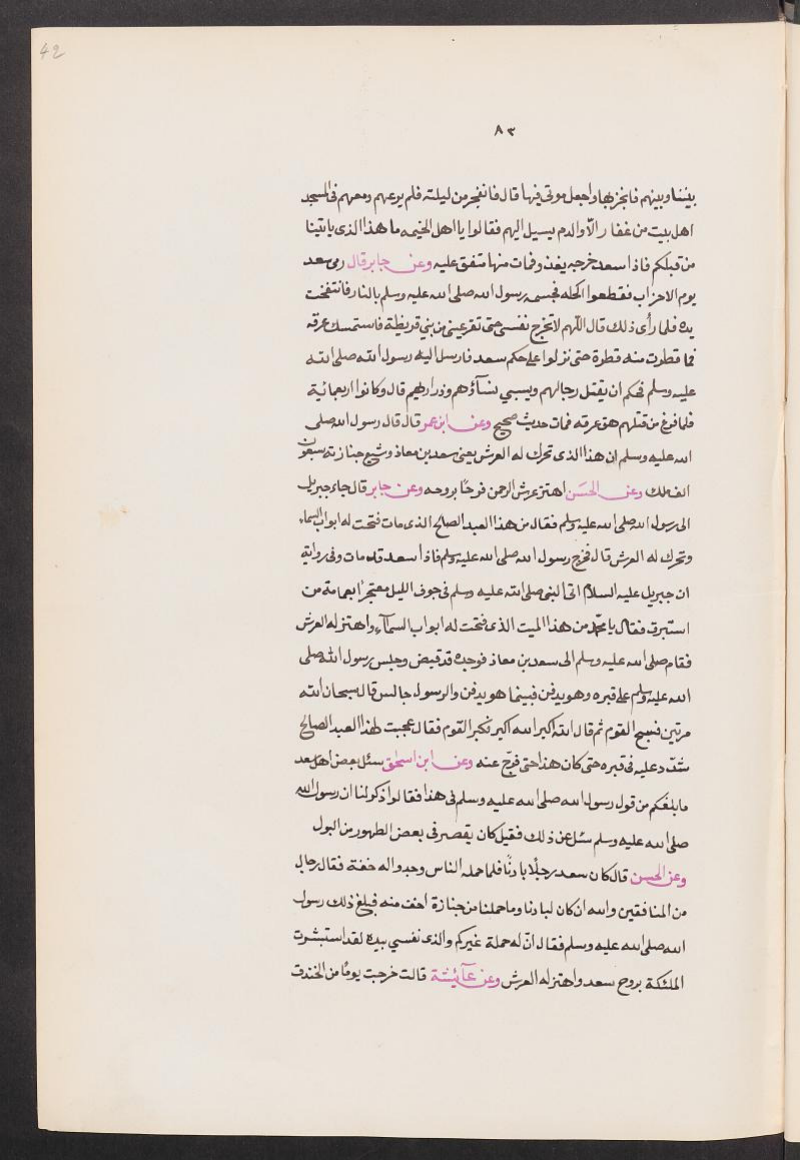 42
٨٣
بيننا وبينهم فانجزها واجعل موتى فيها قال فانفجر من ليلته فلم يرعهم ومعهم فى المسجد
اهل بيت من غفار الا والدم يسيل اليهم فقالوا يا اهل الخيمه ما هذا الذى ياتينا
من قبلكم فاذا سعد جرحه يغذ وفمات منها متفق عليه وعن جابر قال رمى سعد
يوم الاحزاب فقطعوا اكحله فحسمه رسول الله صلى الله عليه وسلم بالنار فانتفخت
يده فلما رأى ذلك قال اللهم لا تخرج نفسى حتى تقر عينى من بنى قريظة فاستمسك عرقه
فما قطرت منه قطرة حتى نزلوا على حكم سعد فارسل اليه رسول الله صلى الله
عليه وسلم فحكم ان يقتل رجالهم ويسبى نسآؤهم وذراريهم قال وكانوا اربعمائية
فلما فرغ من قتلهم هتق عرقه فمات حديث صحيح وعن ابن عمر قال قال رسول الله صلى
الله عليه وسلم ان هذا الذى تحرك له العرش يعنى سعد بن معاذ وشيع جنازته سبعون
الف ملك وعن الحسن اهتز عرش الرحمن فرحًا بروحه وعن جابر قال جاء جبريل
الى رسول الله صلى الله عليه وسلم فقال من هذا العبد الصالح الذى مات فتحت له ابواب السماء
وتحرك له العرش قال فخرج رسول الله صلى الله عليه وسلم فاذا سعد قد مات وفى رواية
ان جبريل عليه السلام اتى النبى صلى الله عليه وسلم فى جوف الليل معتجرًا بعمامة من
استبرق فقال يا محمد من هذا الميت الذى فتحت له ابواب السمآء واهتز له العرش
فقام صلى الله عليه وسلم الى سعد بن معاذ فوجده قد قبض وجلس رسول الله صلى
الله عليه وسلم على قبره وهو يدفن فبينما هو يدفن والرسول جالس قال سبحان الله
مرتين فسبح القوم ثم قال الله اكبر الله اكبر فكبر القوم فقال عجبت لهذا العبد الصالح
شدد عليه فى قبره حتى كان هذا حتى فرج عنه وعن ابن اسحق سئل بعض اهل سعد
ما بلغكم من قول رسول الله صلى الله عليه وسلم فى هذا فقالوا ذكر لنا ان رسول الله
صلى الله عليه وسلم سئل عن ذلك فقيل كان يقصر فى بعض الطهور من البول
وعن الحسن قال كان سعد رجلًا بادنًا فلما حمله الناس وجدوا له خفة فقال رجال
من المنافقين والله ان كان لبادنا وما حملنا من جنازة اخف منه فبلغ ذلك رسول
الله صلى الله عليه وسلم فقال انّ له حملة غيركم والذى نفسي بيده لقد استبشرت
الملئكة بروح سعد واهتز له العرش وعن عآئشة قالت خرجت يومًا من الخندق